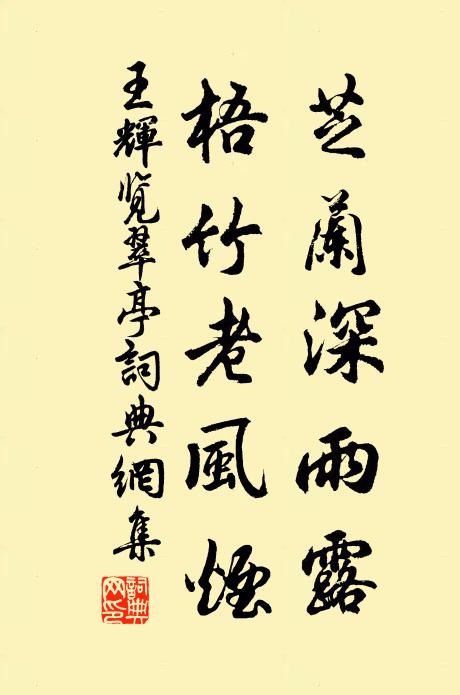 芝蘭深雨露
梧竹老風煙
王輝覽翠亭詞典網集
詞典网印